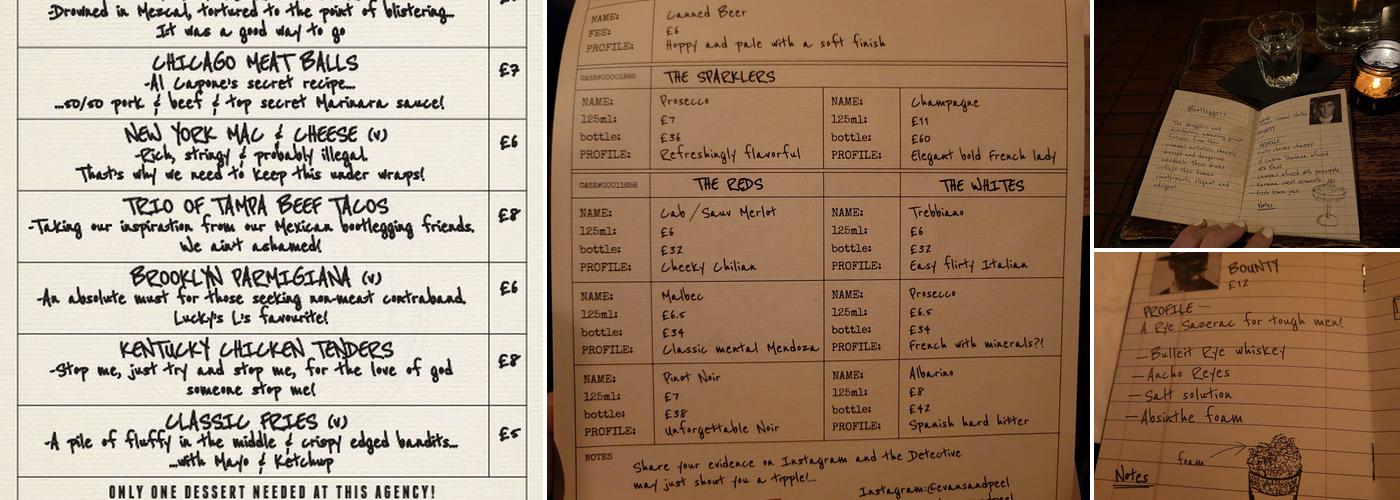 -Drowned in Mezcal, tortured to the point of blistering...
It was a good way to go
CHICAGO MEAT BALLS
£7
-Al Capone's secret recipe...
...50/50 pork & beef & top secret Marinara sauce!
NEW YORK MAC & CHEESE (v)
£6
-Rich, stringy & probably illegal.
That's why we need to keep this under wraps!
TRIO OF TAMPA BEEF TACOS
£8
-Taking our inspiration from our Mexican bootlegging friends.
We aint ashamed!
BROOKLYN PARMIGIANA (v)
£6
-An absolute must for those seeking non-meat contraband.
Lucky's L's favourite!
KENTUCKY CHICKEN TENDERS
£8
-Stop me, just try and stop me, for the love of god
someone stop me!
CLASSIC FRIES (v)
£5
-A pile of fluffy in the middle & crispy edged bandits...
...with Mayo & Ketchup
ONLY ONE DESSERT NEEDED AT THIS AGENCY!
NAME: Canned Beer
FEE: £6
PROFILE: Hoppy and pale with a soft finish
THE SPARKLERS
NAME: Prosecco
125ml: £7
bottle: £36
PROFILE: Refreshingly flavorful
NAME: Champagne
125ml: £11
bottle: £60
PROFILE: Elegant bold French lady
THE REDS
THE WHITES
NAME: Cab/Sauv Merlot
125ml: £6
bottle: £32
PROFILE: Cheeky Chilian
NAME: Trebbiano
125ml: £6
bottle: £32
PROFILE: Easy flirty Italian
NAME: Malbec
125ml: £6.5
bottle: £34
PROFILE: Classic mental Mendoza
NAME: Prosecco
125ml: £6.5
bottle: £34
PROFILE: French with minerals?!
NAME: Pinot Noir
125ml: £7
bottle: £38
PROFILE: Unforgettable Noir
NAME: Albarino
125ml: £8
bottle: £42
PROFILE: Spanish hard hitter
NOTES
Share your evidence on Instagram and the Detective
may just shout you a tipple!...
Instagram:@evansandpeel
Bootleggers
The smugglers and
distributors, amassing great
fortunes from their
criminal activities, sharply
dressed and dangerous
individuals. These drinks
reflect their human
counterparts, elegant and
indulgent.
BOUNTY
PROFILE
Notes
BOUNTY
£12
PROFILE —
A Rye Sazerac for tough men!
— Bulleit Rye whiskey
— Ancho Reyes
— Salt solution
— Absinthe foam
foam
Notes